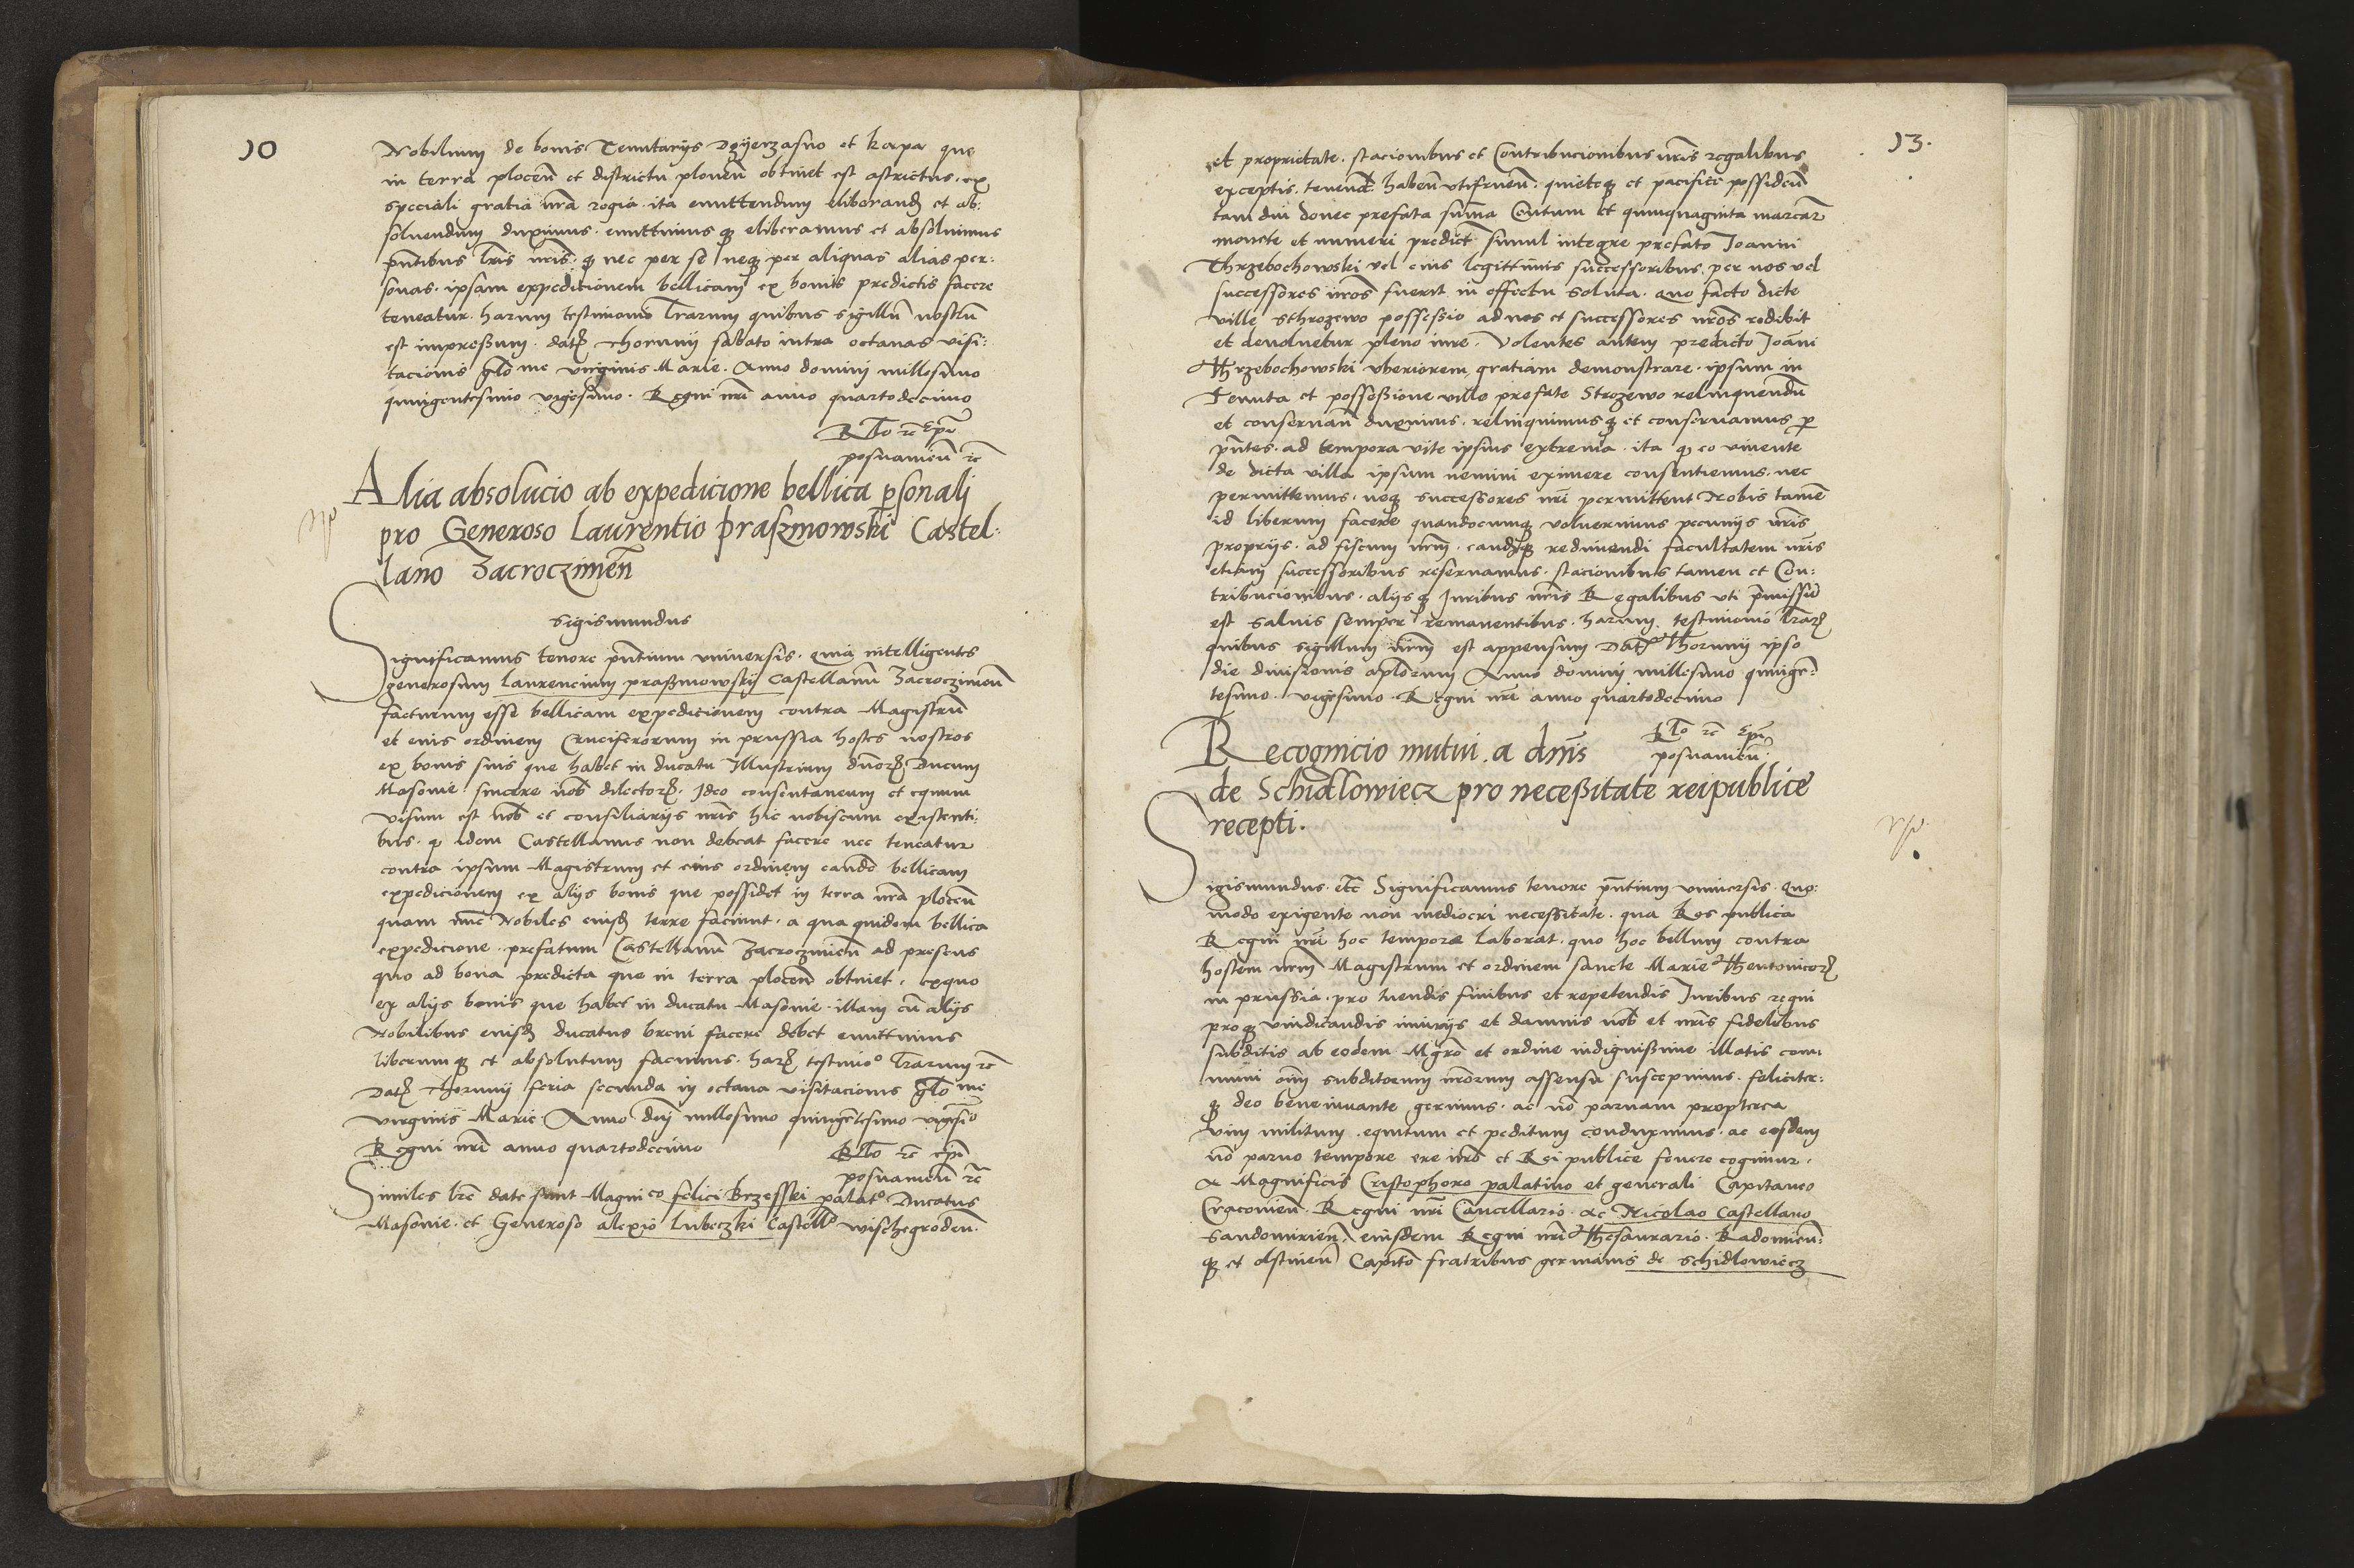 10
Nobilium de bonis Tenutarijs Dzyerzasno et kerpa que
in terra plocen̄ et districtu plonen̄ obtinet est astrictus. ex
speciali gratia nr̄a regia. ita emittendum eliberand et ab:
soluendum duximus. emittimusq3 eliberamus et absoluimus
pn̄tibus lr̄is nr̄is. q nec per se neq3 per aliquas alias per:
sonas. ipsam expedicionem bellicam ex bonis predictis facere
teneatur. harum testimonio lr̄arum quibus sigillū nostrū
est impressum. dat Thorunij sabato intra octauas visi:
tacionis glōme virginis Marie. Anno domini millesimo
quingentesimo vigesimo. Regni nr̄i anno quartodecimo
Rlō rc Ep̄i
posnanien̄ rc
Alia absolucio ab expedicione bellica p̱sonali
pro Generoso Laurentio praßmowski Castel:
lano Zacroczimen̄
Sigismundus
Significamus tenore pn̄tium vniuersis. quia intelligentes
generosum laurencium praßmowskij Castellanū Zacroczimen̄
facturum esse bellicam expedicionem contra Magistrū
et eius ordinem Cruciferorum in prussia hostes nostros
ex bonis suis que habet in ducatu Illustrium dn̄or Ducum
Masouie sincere nob̄ dilector. Ideo consentaneum et equum
visum est nob̄ et consiliarijs nr̄is hic nobiscum existenti:
bus. q idem Castellanus non debeat facere nec teneatur
contra ipsum Magistrum et eius ordinem eandē bellicam
expedicionem ex alijs bonis que possidet in terra nr̄a plocen̄
quam nūc Nobiles eiusd terre faciunt. a qua quidem bellica
expedicione. prefatum Castellanū Zacroczimien̄ ad presens
quo ad bona predicta que in terra plocen̄ obtinet. exquo
ex alijs bonis que habet in ducatu Masouie. illam cū alijs
Nobilibus eiusd ducatus breui facere debet emittimus
liberumq3 et absolutum facimus. har testimoo lr̄arum rc
Dat Thorunij feria secunda in octaua visitacionis glōme
virginis Marie Anno dn̄j millesimo quingētesimo vigesio
Regni nr̄i anno quartodecimo
Rlō rc ep̄i
posnanien̄ rc
Similes lr̄e date sunt Magnico felici Brzesski palato Ducatus
Masouie. et Generoso alexio lubeczki Castello wischegroden̄.
13.
et proprietate. stacionibus et Contribucionibus nr̄is regalibus
exceptis. tenend. haben̄ vtifruen̄. quieteq3 et pacifice possiden̄
tam diu donec prefata summa Centum et quinquaginta marcar̄
monete et numeri predict. simul integre prefato Joanni
Thrzebochowski vel eius legittimis successoribus. per nos vel
successores nr̄os fuerit in effectu soluta. quo facto dicte
ville Sthrozewo possessio ad nos et successores nr̄os redibit
et deuoluetur pleno iure. Volentes autem predicto Joan̄i
Thrzebochowski vberiorem gratiam demonstrare. ipsum in
Tenuta et possessione ville prefate Strozewo relinquendū
et conseruan̄ duximus. relinquimusq3 et conseruamus p̱
pn̄tes. ad tempora vite ipsius extrema. ita q eo viuente
de dicta villa ipsum nemini eximere consentiemus. nec
permittemus. neq3 successores nr̄i permittent Nobis tamē
id liberum facere quandocumq3 voluerimus pecunijs nr̄is
proprijs. ad fiscum nr̄m. eandēq3 redimendi facultatem nr̄is
etiam successoribus reseruamus. stacionibus tamen et Con:
tribucionibus. alijsq3 Juribus nr̄is Regalibus vti pmissū
est saluis semper remanentibus. harum testimonio lr̄ar
quibus sigillum nr̄m est appensum Dat Thorunij ipso
die diuisionis aplōrum Anno domini millesimo quingē:
tesimo. vigesimo. Regni nr̄i anno quartodecimo
Rlō rc Ep̄i
posnanien̄.
Recognicio mutui a dn̄is
de Schidlowiecz pro necessitate reipublice
recepti.
Sigismundus. etc Significamus tenore pn̄tium vniuersis. Quo:
modo exigente non mediocri necessitate. qua Res publica
Regni nr̄i hoc tempore laborat. quo hoc bellum contra
hostem nr̄m Magistrum et ordinem sancte Marie Theutonicor
in prussia. pro tuendis finibus et repetendis Juribus regni
proq3 vindicandis iniurijs et damnis nob̄ et nr̄is fidelibus
subditis ab eodem Mgrō et ordine indignissime illatis com
muni om̄i subditorum nr̄orum assensu suscepimus. feliciter:
q3 deo bene iuuante gerimus. ac nō paruam propterea
vim militum equitum et peditum conduximus. ac eosdem
nō paruo tempore ere nr̄o et Rei publice fouere cogimur.
a Magnificis Cristophoro palatino et generali Capitaneo
Cracouien̄. Regni nr̄i Cancellario. ac Nicolao Castellano
Sandomirien̄. eiusdem Regni nr̄i Thesaurario. Radomien̄:
q3 et olstinen̄ Capitō fratribus germanis de Schidlowiecz